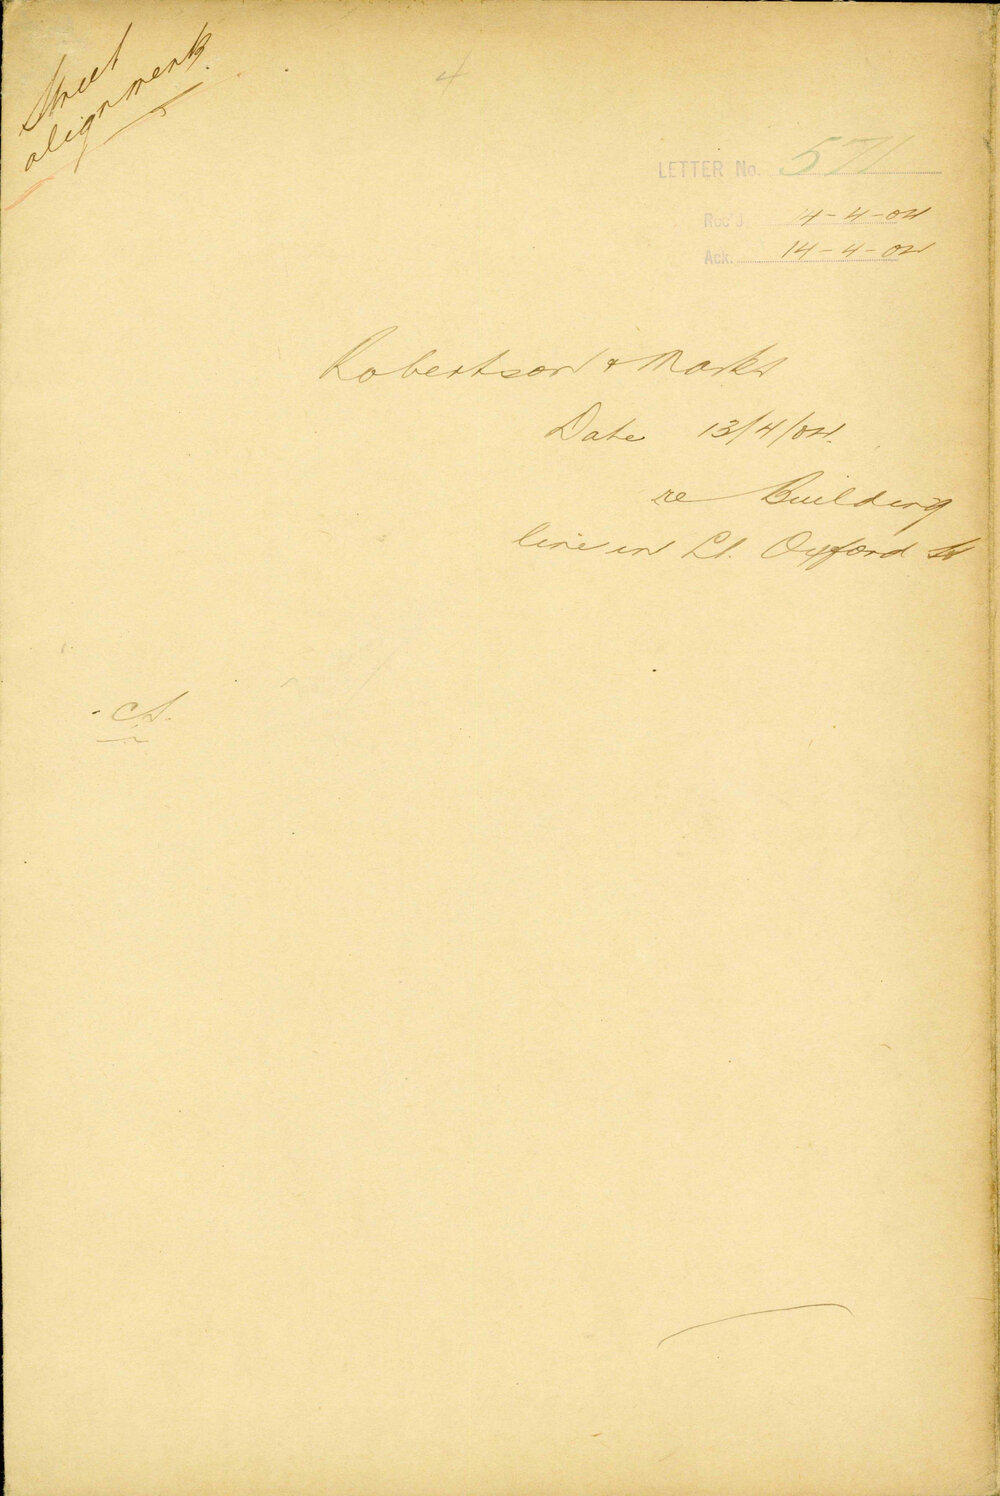 Street
alignment.
4
LETTER No. 571
Rec'd. 14-4-04
Ack. 14-4-04
Robertson & Marks
Date 13/4/04.
re Building
line in Lt. Oxford St